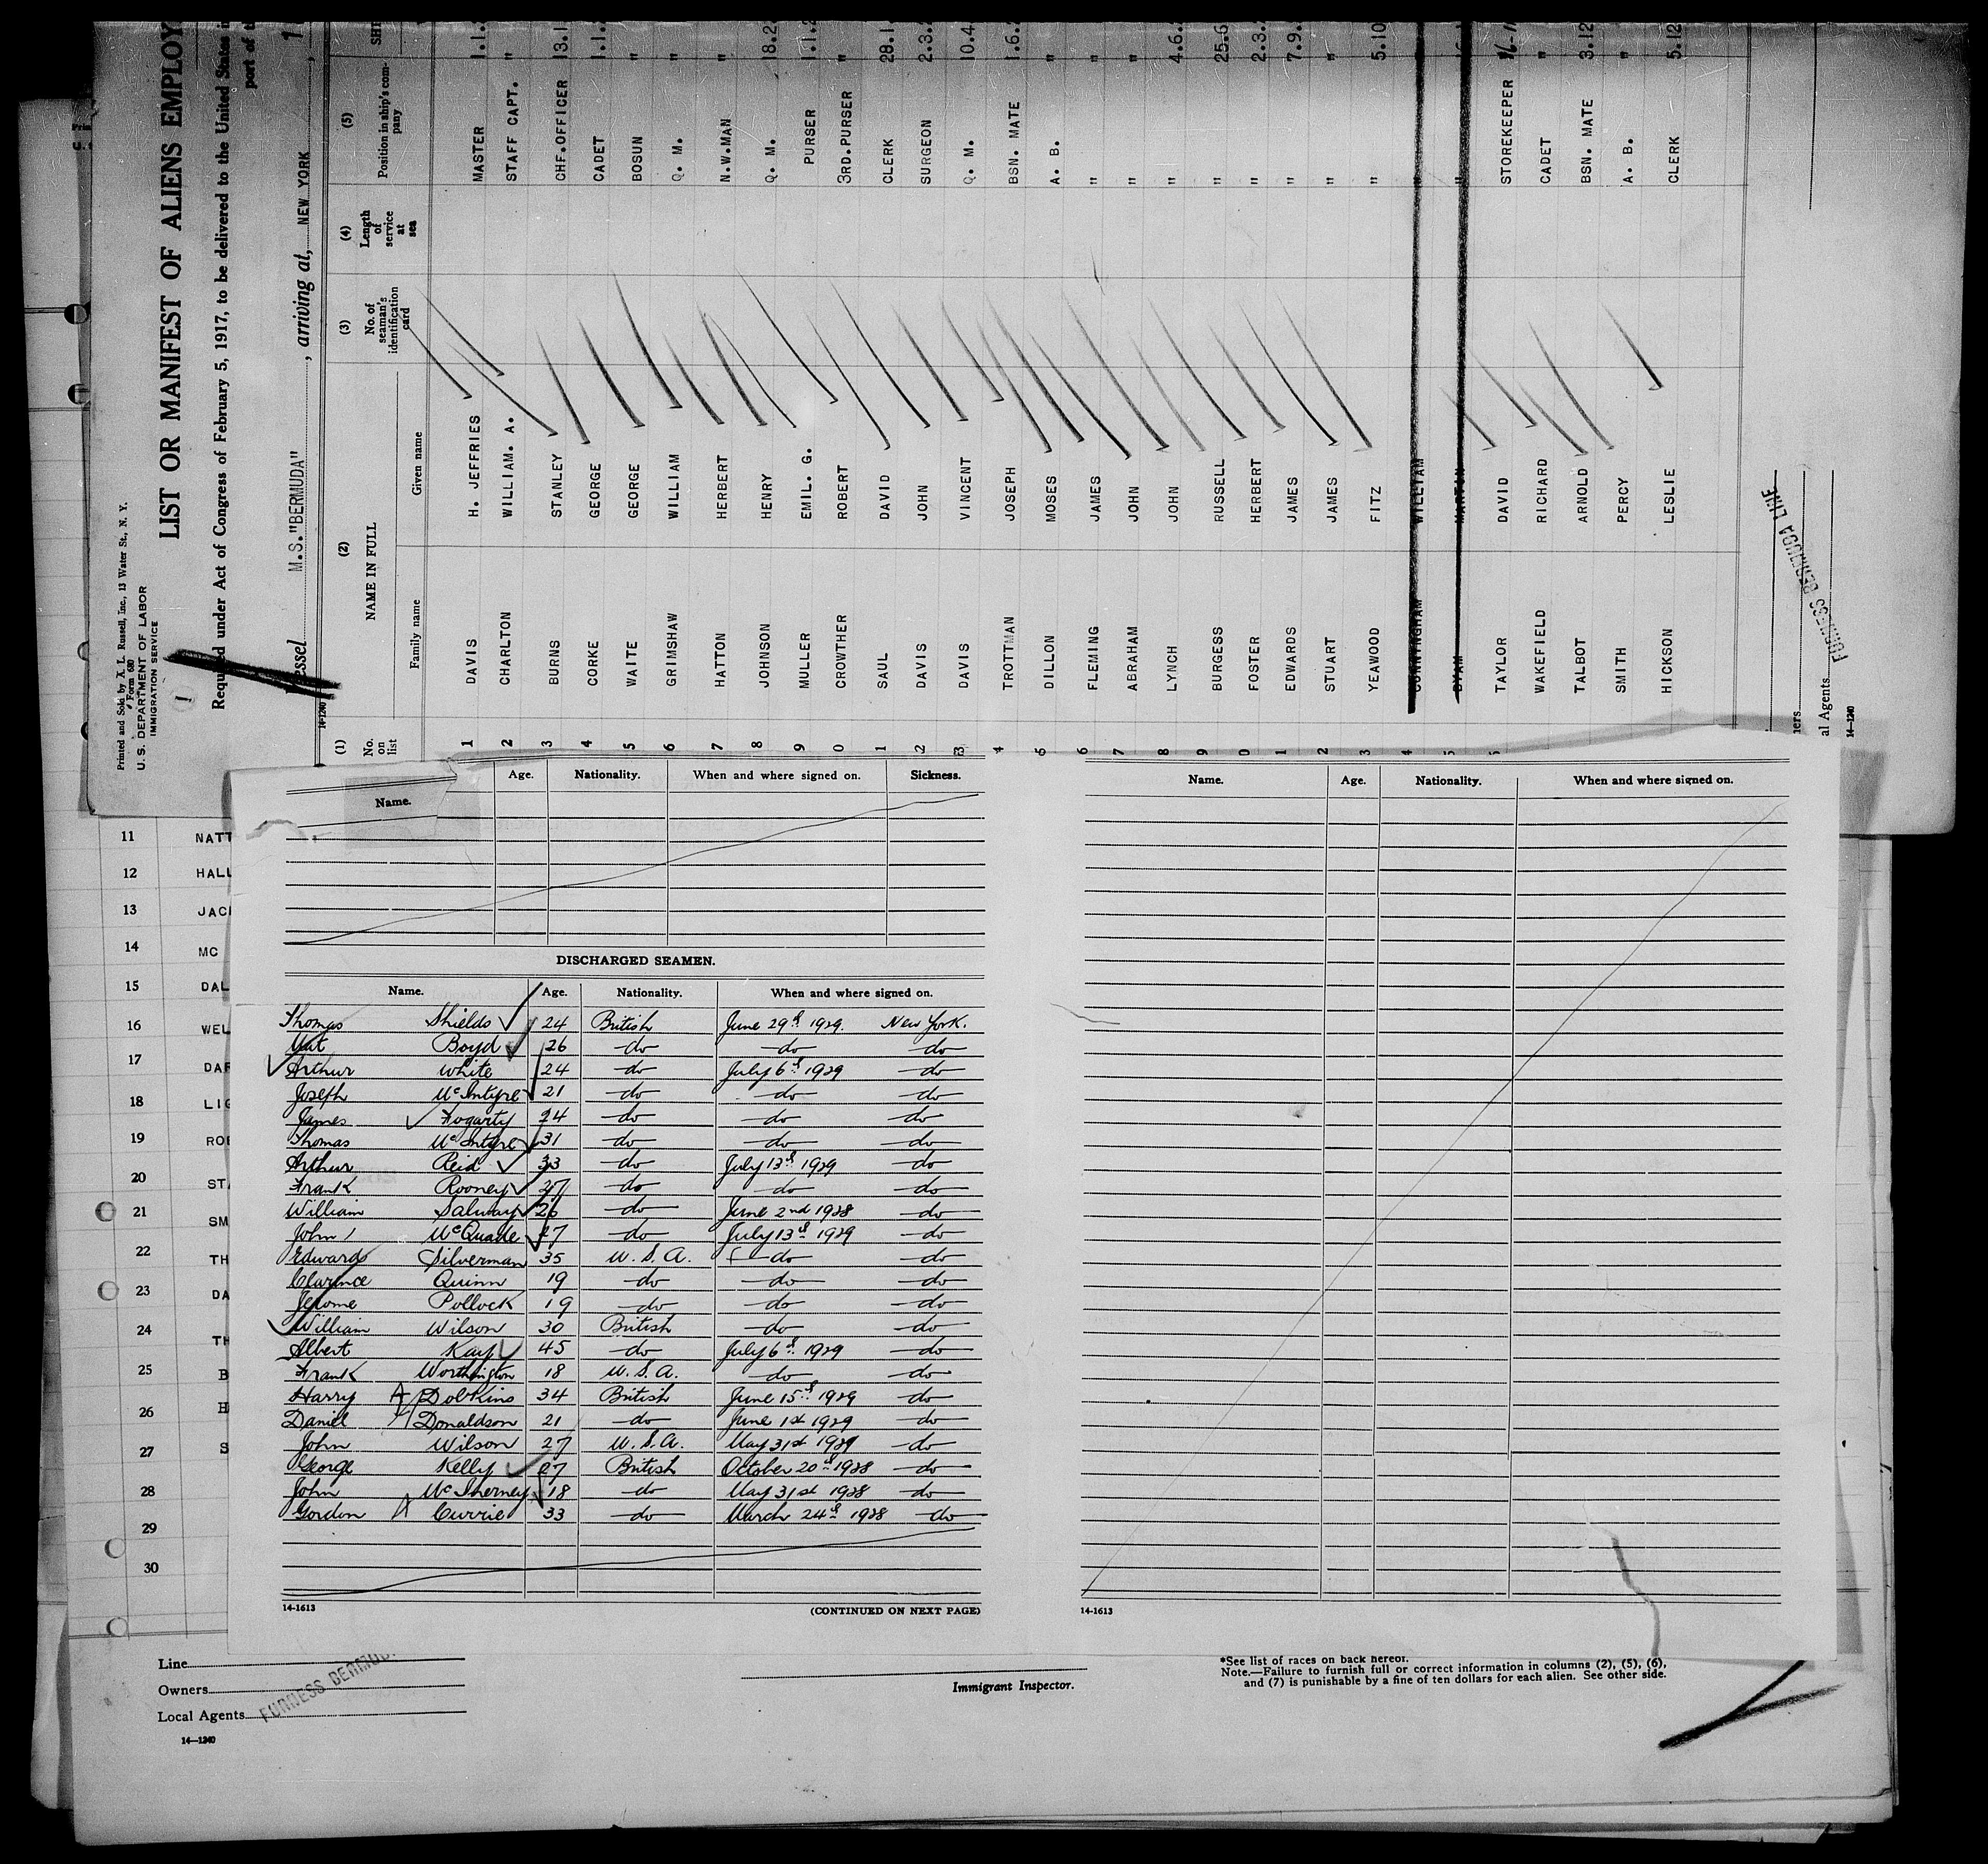 Printed and Sold by X. L. Russell, Inc., 13 Water St., N. Y.
Form 680
U. S. DEPARTMENT OF LABOR
IMMIGRATION SERVICE
LIST OR MANIFEST OF ALIENS EMPLOY
Required under Act of Congress of February 5, 1917, to be delivered to the United States
port of
Vessel M.S."BERMUDA", arriving at, NEW YORK,
14-1240
(1) (2) (3) (4) (5)
No. on list NAME IN FULL No. of seaman's identification card Length of service at sea Position in ship's company
Family name Given name
1 DAVIS H. JEFFRIES MASTER 1.1.
2 CHARLTON WILLIAM. A. STAFF CAPT. "
3 BURNS STANLEY CHF.OFFICER 13.1
4 CORKE GEORGE CADET 1.1.
5 WAITE GEORGE BOSUN "
6 GRIMSHAW WILLIAM Q. M. "
7 HATTON HERBERT N.W.MAN "
8 JOHNSON HENRY Q. M. 18.2
9 MULLER EMIL. G. PURSER 1.1.
0 CROWTHER ROBERT 3RD.PURSER "
1 SAUL DAVID CLERK 28.1
2 DAVIS JOHN SURGEON 2.3.
3 DAVIS VINCENT Q. M. 10.4
4 TROTTMAN JOSEPH BSN. MATE 1.6.
5 DILLON MOSES A. B. "
6 FLEMING JAMES " "
7 ABRAHAM JOHN " "
8 LYNCH JOHN " 4.6.
9 BURGESS RUSSELL " 25.6
0 FOSTER HERBERT " 2.3.
1 EDWARDS JAMES " 7.9.
2 STUART JAMES "
3 YEAWOOD FITZ " 5.10
4 CUNNINGHAM WILLIAM
5 BYAM MARTIN "
TAYLOR DAVID STOREKEEPER
WAKEFIELD RICHARD CADET "
TALBOT ARNOLD BSN. MATE 3.12
SMITH PERCY A. B. "
HICKSON LESLIE CLERK 5.12
FURNESS BERMUDA LINE
al Agents
14—1240
Name. Age. Nationality. When and where signed on. Sickness.
Name. Age. Nationality. When and where signed on.
11 NATT
12 HALL
13 JAC
14 MC
15 DAL
16 WEL
17 DAR
18 LIG
19 ROB
20 ST
21 SM
22 TH
23 DA
24 TH
25 B
26 H
27 S
28
29
30
DISCHARGED SEAMEN.
Name. Age. Nationality. When and where signed on.
Thomas Shields 24 British June 29th 1929. New York.
Mat Boyd 26 do do do
Arthur White 24 do July 6th 1929 do
Joseph McIntyre 21 do do do
James Fogarty 24 do do do
Thomas McIntyre 31 do do do
Arthur Reid 33 do July 13th 1929 do
Frank Rooney 27 do do do
William Salway 26 do June 2nd 1928 do
John McQuade 27 do July 13th 1929 do
Edward Silverman 35 U. S. A. do do
Clarence Quinn 19 do do do
Jerome Pollock 19 do do do
William Wilson 30 British do do
Albert Kay 45 do July 6th 1929 do
Frank Worthington 18 U. S. A. do do
Harry Dobkins 34 British June 15th 1929 do
Daniel Donaldson 21 do June 1st 1929 do
John Wilson 27 U. S. A. May 31st 1929 do
George Kelly 27 British October 20th 1928 do
John McInerney 18 do May 31st 1928 do
Gordon Currie 33 do March 24th 1928 do
14-1613
(CONTINUED ON NEXT PAGE)
14-1613
Line
Owners
Local Agents
FURNESS BERMUD
14—1240
Immigrant Inspector.
*See list of races on back hereof.
Note.—Failure to furnish full or correct information in columns (2), (5), (6),
and (7) is punishable by a fine of ten dollars for each alien. See other side.